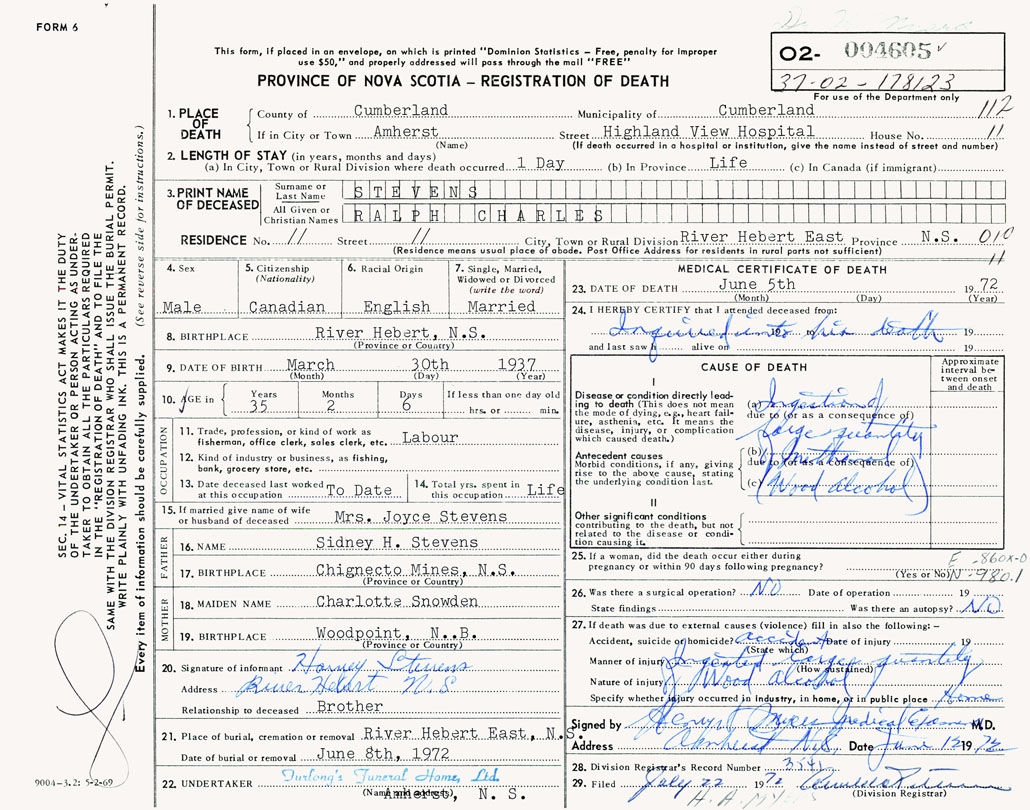 FORM 6
This form, if placed in an envelope, on which is printed "Dominion Statistics – Free, penalty for improper
use $50," and properly addressed will pass through the mail "FREE"
PROVINCE OF NOVA SCOTIA – REGISTRATION OF DEATH
02- 004605
37-02-178123
For use of the Department only
1. PLACE OF DEATH County of Cumberland Municipality of Cumberland 112
If in City or Town Amherst Street Highland View Hospital House No. 11
(Name) (If death occurred in a hospital or institution, give the name instead of street and number)
2. LENGTH OF STAY (in years, months and days)
(a) In City, Town or Rural Division where death occurred 1 Day (b) In Province Life (c) In Canada (if immigrant)
3. PRINT NAME OF DECEASED Surname or Last Name STEVENS
All Given or Christian Names RALPH CHARLES
RESIDENCE No. // Street // City, Town or Rural Division River Hebert East Province N.S. 010
(Residence means usual place of abode. Post Office Address for residents in rural parts not sufficient) 11
SEC. 14 – VITAL STATISTICS ACT MAKES IT THE DUTY
OF THE UNDERTAKER OR PERSON ACTING AS UNDER-
TAKER TO OBTAIN ALL THE PARTICULARS REQUIRED
IN THE "REGISTRATION OF DEATH" AND TO FILE THE
SAME WITH THE DIVISION REGISTRAR WHO SHALL ISSUE THE BURIAL PERMIT.
WRITE PLAINLY WITH UNFADING INK. THIS IS A PERMANENT RECORD.
Every item of information should be carefully supplied. (See reverse side for instructions.)
4. Sex Male
5. Citizenship (Nationality) Canadian
6. Racial Origin English
7. Single, Married, Widowed or Divorced (write the word) Married
8. BIRTHPLACE River Hebert, N.S.
(Province or Country)
9. DATE OF BIRTH March 30th 1937
(Month) (Day) (Year)
10. AGE in Years 35 Months 2 Days 6 If less than one day old hrs. or min.
OCCUPATION
11. Trade, profession, or kind of work as
fisherman, office clerk, sales clerk, etc. Labour
12. Kind of industry or business, as fishing,
bank, grocery store, etc.
13. Date deceased last worked at this occupation To Date
14. Total yrs. spent in this occupation Life
15. If married give name of wife
or husband of deceased Mrs. Joyce Stevens
FATHER
16. NAME Sidney H. Stevens
17. BIRTHPLACE Chignecto Mines, N.S.
(Province or Country)
MOTHER
18. MAIDEN NAME Charlotte Snowden
19. BIRTHPLACE Woodpoint, N..B.
(Province or Country)
20. Signature of informant Harvey Stevens
Address River Hebert N.S
Relationship to deceased Brother
21. Place of burial, cremation or removal River Hebert East, N.S.
Date of burial or removal June 8th, 1972
22. UNDERTAKER Furlong's Funeral Home, Ltd.
(Name and address) Amherst, N. S.
9004-3.2: 5-2-69
MEDICAL CERTIFICATE OF DEATH
23. DATE OF DEATH June 5th 1972
(Month) (Day) (Year)
24. I HEREBY CERTIFY that I attended deceased from:
Inquired into his death 19 to 19
and last saw h alive on 19
CAUSE OF DEATH
Approximate interval between onset and death
I
Disease or condition directly leading to death (This does not mean the mode of dying, e.g., heart failure, asthenia, etc. It means the disease, injury, or complication which caused death.)
(a) Ingestion of
due to (or as a consequence of)
large quantity
Antecedent causes
Morbid conditions, if any, giving rise to the above cause, stating the underlying condition last.
(b) of methanol
due to (or as a consequence of)
(c) (Wood alcohol)
II
Other significant conditions
contributing to the death, but not related to the disease or condition causing it.
25. If a woman, did the death occur either during
pregnancy or within 90 days following pregnancy?
(Yes or No)
E -860X-0
N-980.1
26. Was there a surgical operation? NO Date of operation 19
State findings Was there an autopsy? NO
27. If death was due to external causes (violence) fill in also the following: –
Accident, suicide or homicide? accident Date of injury 19
(State which)
Manner of injury Ingested large quantity
(How sustained)
Nature of injury of Wood alcohol
Specify whether injury occurred in industry, in home, or in public place Home
Signed by Medical Examiner M.D.
Address Amherst N.S. Date June 12 1972
28. Division Registrar's Record Number 3541
29. Filed July 22 1972
(Division Registrar)